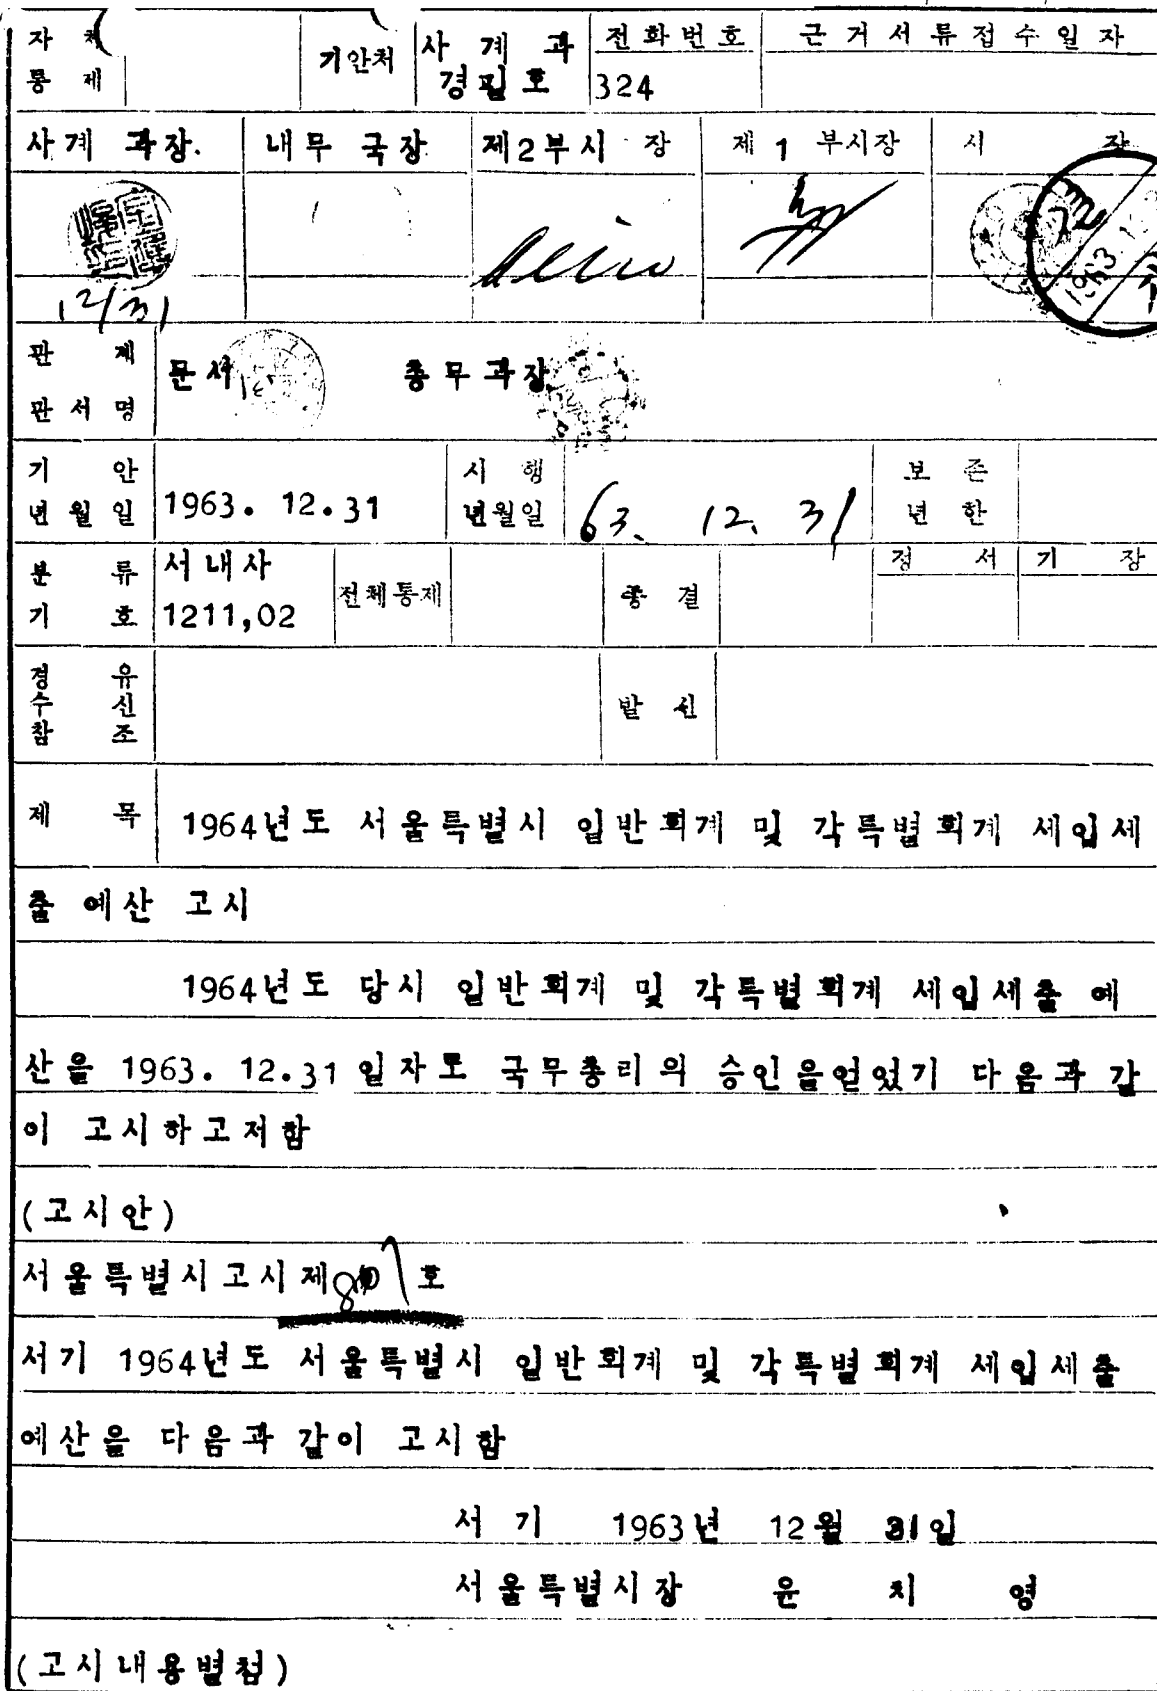 자체
통제
기안처
사계과
경필호
전화번호
324
근거서류접수일자
사계 과장.
내무 국장
제2부시장
제 1 부시장
시 장
12/31
관계
관서명
문서
총무과장
기안
년월일
1963. 12.31
시행
년월일
63. 12. 31
보존
년한
분류
기호
서내사
1211,02
전체통제
종결
정서
기장
경유
수신
참조
발신
제목
1964년도 서울특별시 일반회계 및 각특별회계 세입세
출 예산 고시
1964년도 당시 일반회계 및 각특별회계 세입세출 예
산을 1963. 12.31 일자로 국무총리의 승인을얻었기 다음과 같
이 고시하고저함
(고시안)
서울특별시고시제 호
서기 1964년도 서울특별시 일반회계 및 각특별회계 세입세출
예산을 다음과 같이 고시함
서기 1963년 12월 31일
서울특별시장 윤 치 영
(고시내용별첨)